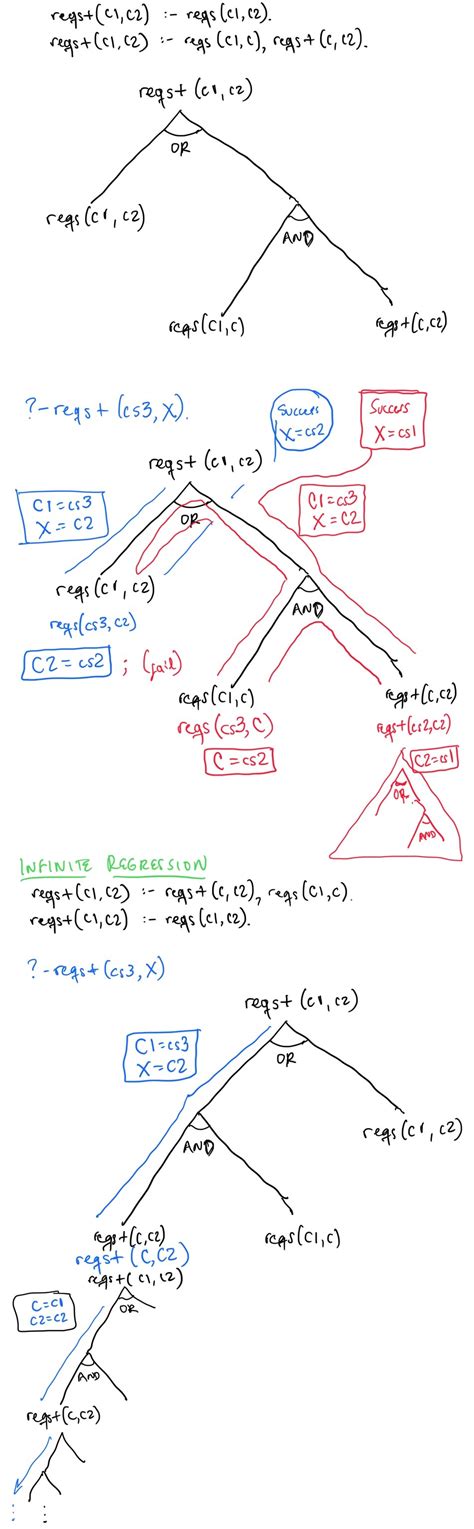 reqs+(C1,C2) :- reqs(C1,C2).
reqs+(C1,C2) :- reqs(C1,C), reqs+(C,C2).
reqs+(C1,C2)
OR
reqs(C1,C2)
AND
reqs(C1,C)
reqs+(C,C2)
?-reqs+(cs3,X).
Success
X=cs2
Success
X=cs1
reqs+(C1,C2)
C1=cs3
X=C2
OR
C1=cs3
X=C2
reqs(C1,C2)
reqs(cs3,C2)
C2=cs2 ; (fail)
AND
reqs(C1,C)
reqs(cs3,C)
C=cs2
reqs+(C,C2)
reqs+(cs2,C2)
C2=cs1
OR
AND
INFINITE REGRESSION
reqs+(C1,C2) :- reqs+(C,C2), reqs(C1,C).
reqs+(C1,C2) :- reqs(C1,C2).
?-reqs+(cs3,X)
reqs+(C1,C2)
C1=cs3
X=C2
OR
AND
reqs(C1,C2)
reqs+(C,C2)
reqs(C1,C)
reqs+(C,C2)
reqs+(C1,C2)
OR
C=C1
C2=C2
AND
reqs+(C,C2)